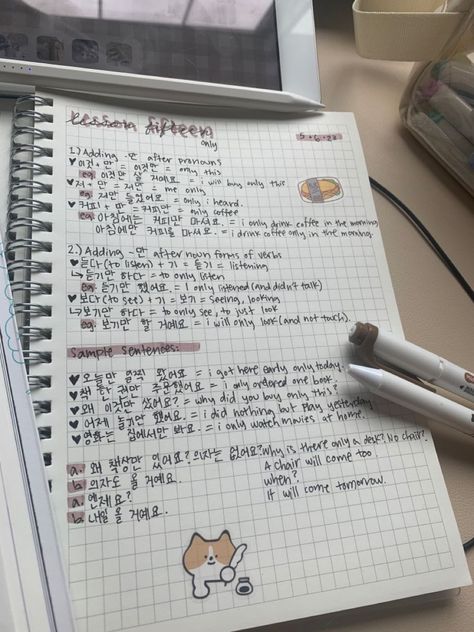 Lesson fifteen
5.6.23
only
1.) Adding -만 after pronouns
♥ 이것 + 만 = 이것만 = only this
eg. 이것만 살 거예요. = i will buy only this
♥ 저 + 만 = 저만 = me only
eg. 저만 들었어요. = only i heard.
♥ 커피 + 만 = 커피만 = only coffee
eg. 아침에는 커피만 마셔요. = i only drink coffee in the morning
아침에만 커피를 마셔요. = i drink coffee only in the morning.
2.) Adding -만 after noun forms of verbs
♥ 듣다 (to listen) + 기 = 듣기 = listening
↳ 듣기만 하다 = to only listen
eg. 듣기만 했어요. = I only listened (and didn't talk)
♥ 보다 (to see) + 기 = 보기 = seeing, looking
↳ 보기만 하다 = to only see, to just look
eg. 보기만 할 거예요. = i will only look (and not touch).
Sample Sentences:
♥ 오늘만 일찍 왔어요 = i got here early only today.
♥ 책 한 권만 주문했어요 = i only ordered one book.
♥ 왜 이것만 샀어요? = why did you buy only this?
♥ 어제 놀기만 했어요. = i did nothing but play yesterday
♥ 영화는 집에서만 봐요. = i only watch movies at home.
a. 왜 책상만 있어요? 의자는 없어요? Why is there only a desk? No chair?
b. 의자도 올 거예요. A chair will come too.
a. 언제요? when?
b. 내일 올 거예요. It will come tomorrow.